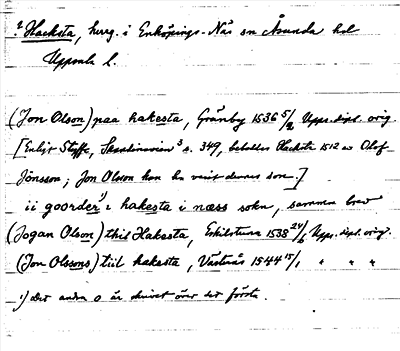 ? Hacksta, herrg. i Enköpings-Näs sn Åsunda hd
Uppsala l.
(Jon Olson) paa hakesta, Gränby 1536 5/2 Upps. dipl. orig.
[Enligt Styffe, Skandinavien ³ s. 349, beboddes Hacksta 1512 av Olof
Jönsson; Jon Olson kan ha varit dennes son.]
ii goorder ¹) i hakesta i næss sokn, samma brev
(Jogan Olson) thil Hakesta, Eskilstuna 1538 24/6 Upps. dipl. orig.
(Jon Olssons) tiil hakesta, Västerås 1544 15/1 " " "
¹) Det andra o är skrivet över det första.